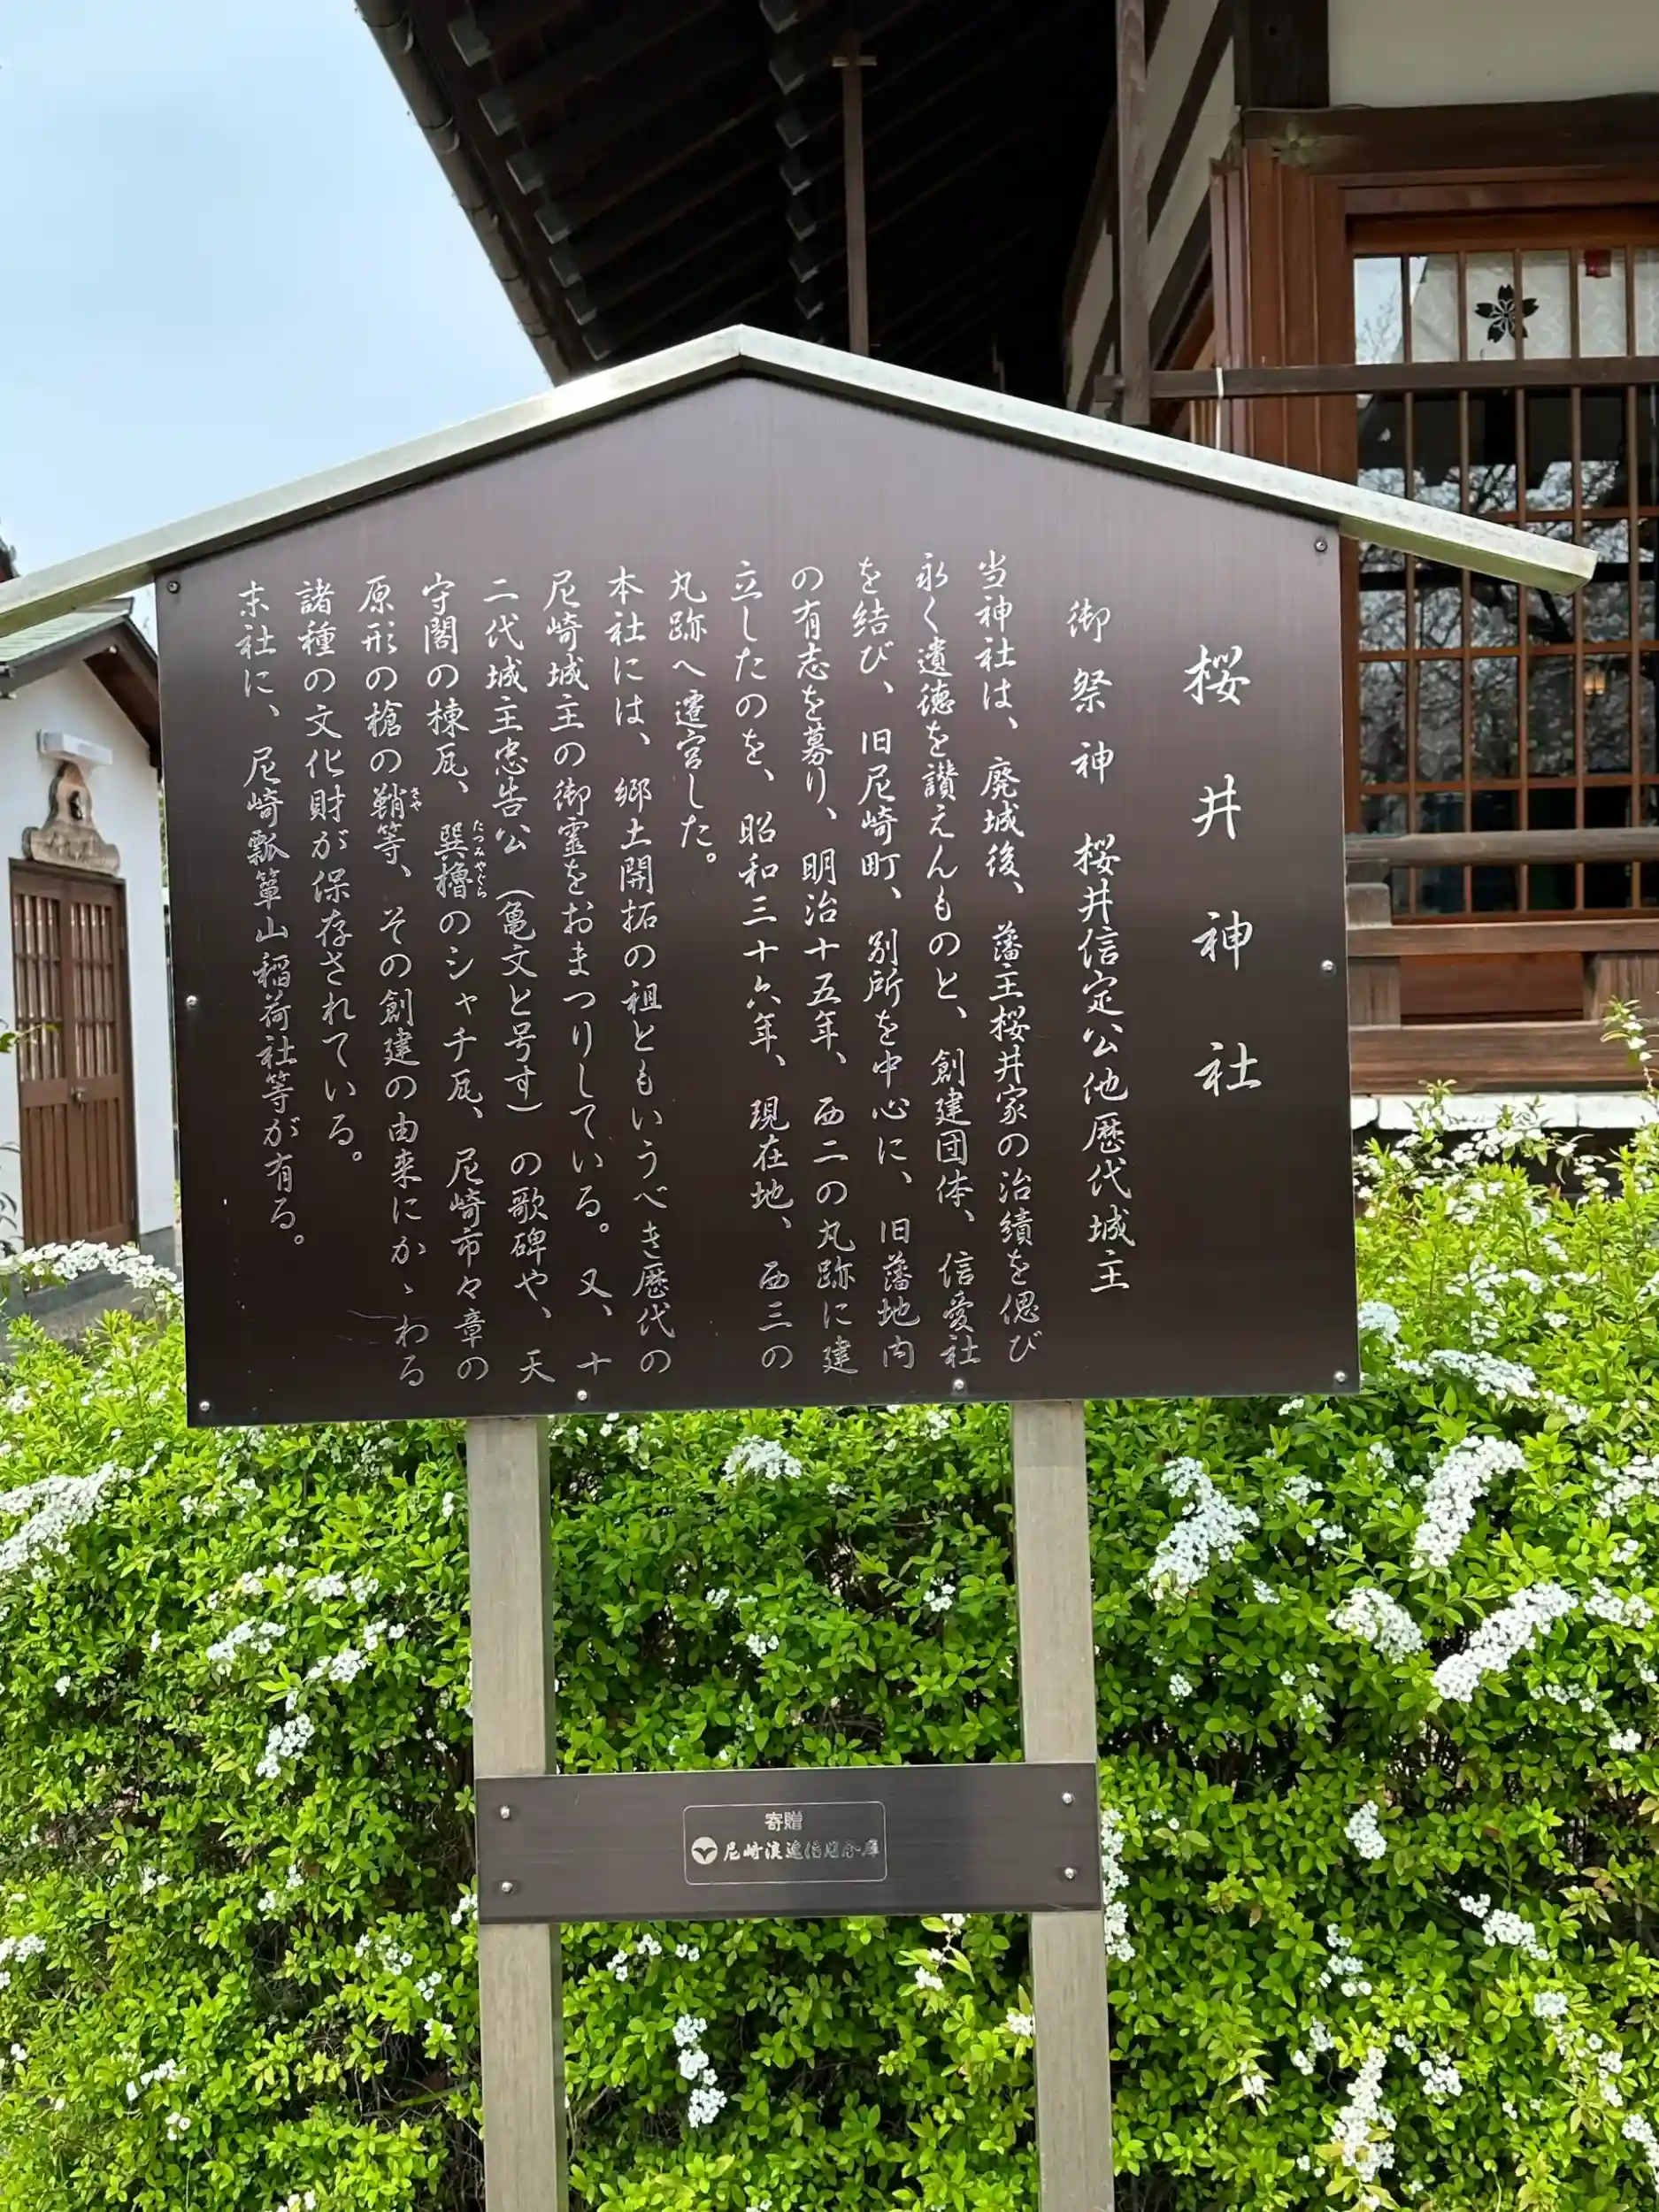 桜井神社
御祭神 桜井信定公他歴代城主
当神社は、廃城後、藩主桜井家の治績を偲び
永く遺徳を讃えんものと、創建団体、信愛社
を結び、旧尼崎町、別所を中心に、旧藩地内
の有志を募り、明治十五年、西二の丸跡に建
立したのを、昭和三十六年、現在地、西三の
丸跡へ遷宮した。
本社には、郷土開拓の祖ともいうべき歴代の
尼崎城主の御霊をおまつりしている。又、十
二代城主忠告公(亀文と号す)の歌碑や、天
守閣の棟瓦、巽櫓のシャチ瓦、尼崎市々章の
たつみやぐら
原形の槍の鞘等、その創建の由来にかゝわる
さや
諸種の文化財が保存されている。
末社に、尼崎瓢簞山稲荷社等が有る。
寄贈
尼崎浪速信用金庫